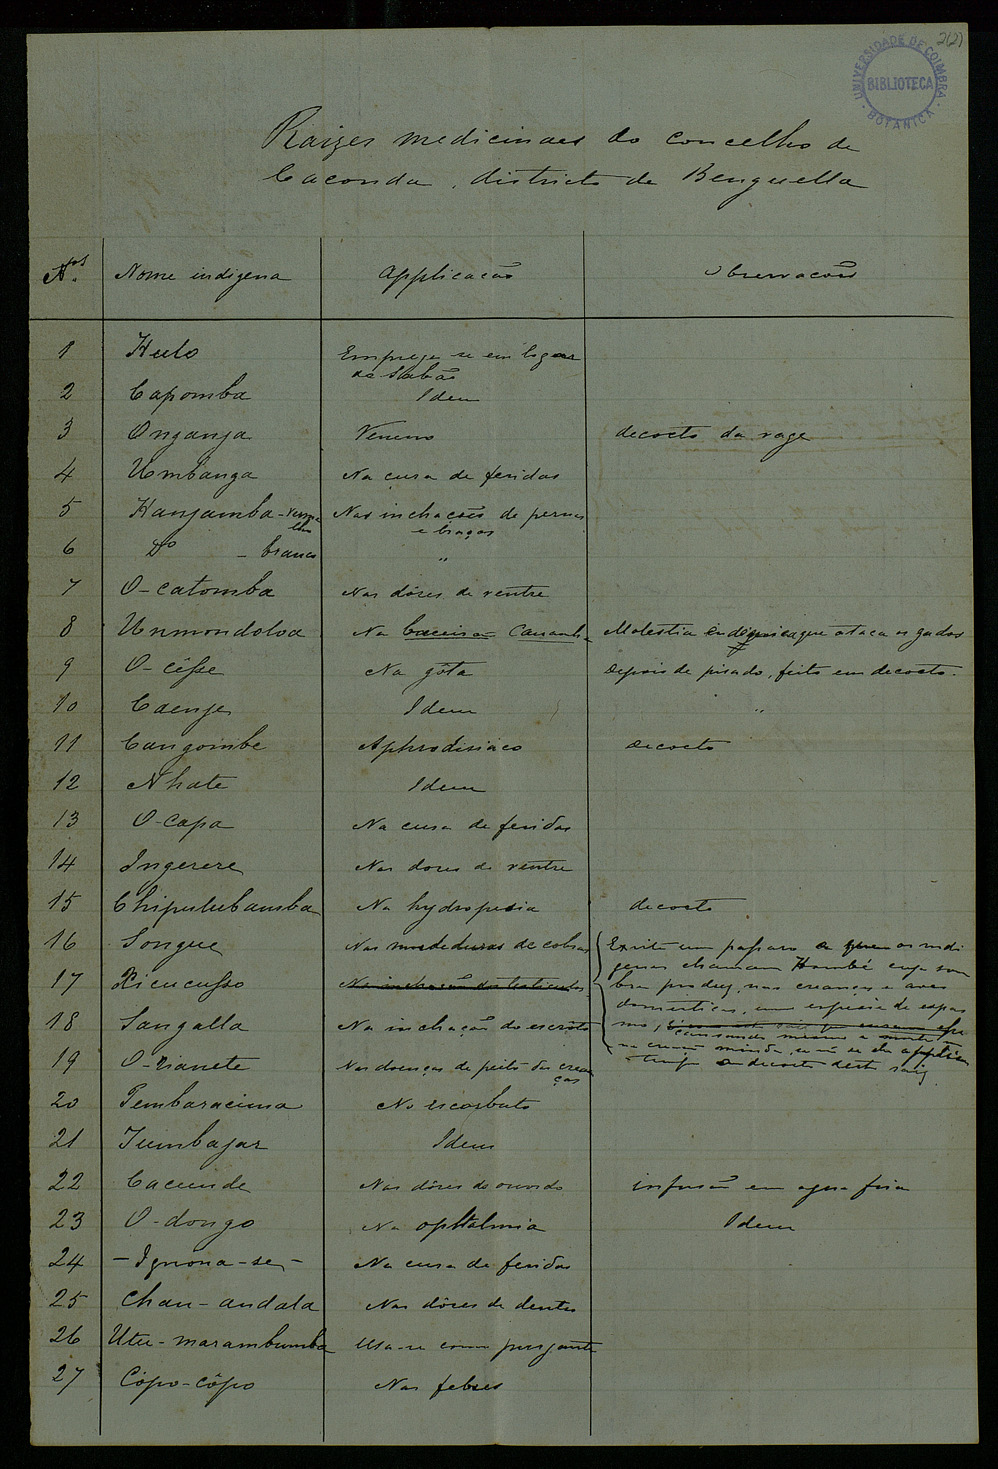 2(2)
UNIVERSIDADE DE COIMBRA
BIBLIOTECA
BOTANICA
Raizes medicinaes do concelho de
Caconda, districto de Benguella
Nos Nome indigena Applicação Observacões
1 Hulo Emprega-se em logar
de Sabão
2 Capomba Idem
3 Onganga Veneno decocto da
4 Umbanga Na cura de feridas
5 Hangamba-verme Nas inchacões de pernas
lha e braços
6 Do - branca "
7 O-catomba Nas dôres de ventre
8 Na Molestia endemica que ataca os gados
9 O-cêsse Na gôta Depois de pisado, feito em decocto.
10 Caenge Idem "
11 Cangombe Aphrodisiaco decocto
12 Nhate Idem
13 O-capa Na cura de feridas
14 Ingerere Nas dores de ventre
15 Chipulubamba Na hydropesia decocto
16 Songue Nas mordeduras de cobras Existe um passaro a quem os indi
17 Ricucusso Na inchação dos testiculos genas chamam Hambé cuja som
bra produz, nas creanças e aves
18 Sangalla Na inchação do escroto domesticas, uma especie de espas
mo,
19 O-Rianete Nas doenças de peito das crean
ças tempo o decocto desta raiz
20 Tembaracima No escorbuto
21 Tumbajar Idem
22 Cacunde Nas dôres do ouvido infusão em agua fria
23 O-dongo Na ophtalmia Idem
24 -Ignona-se- Na cura de feridas
25 Chan-andala Nas dôres de dentes
26 Utu-marambumba Usa-se como purgante
27 Côpo-côpo Nas febres